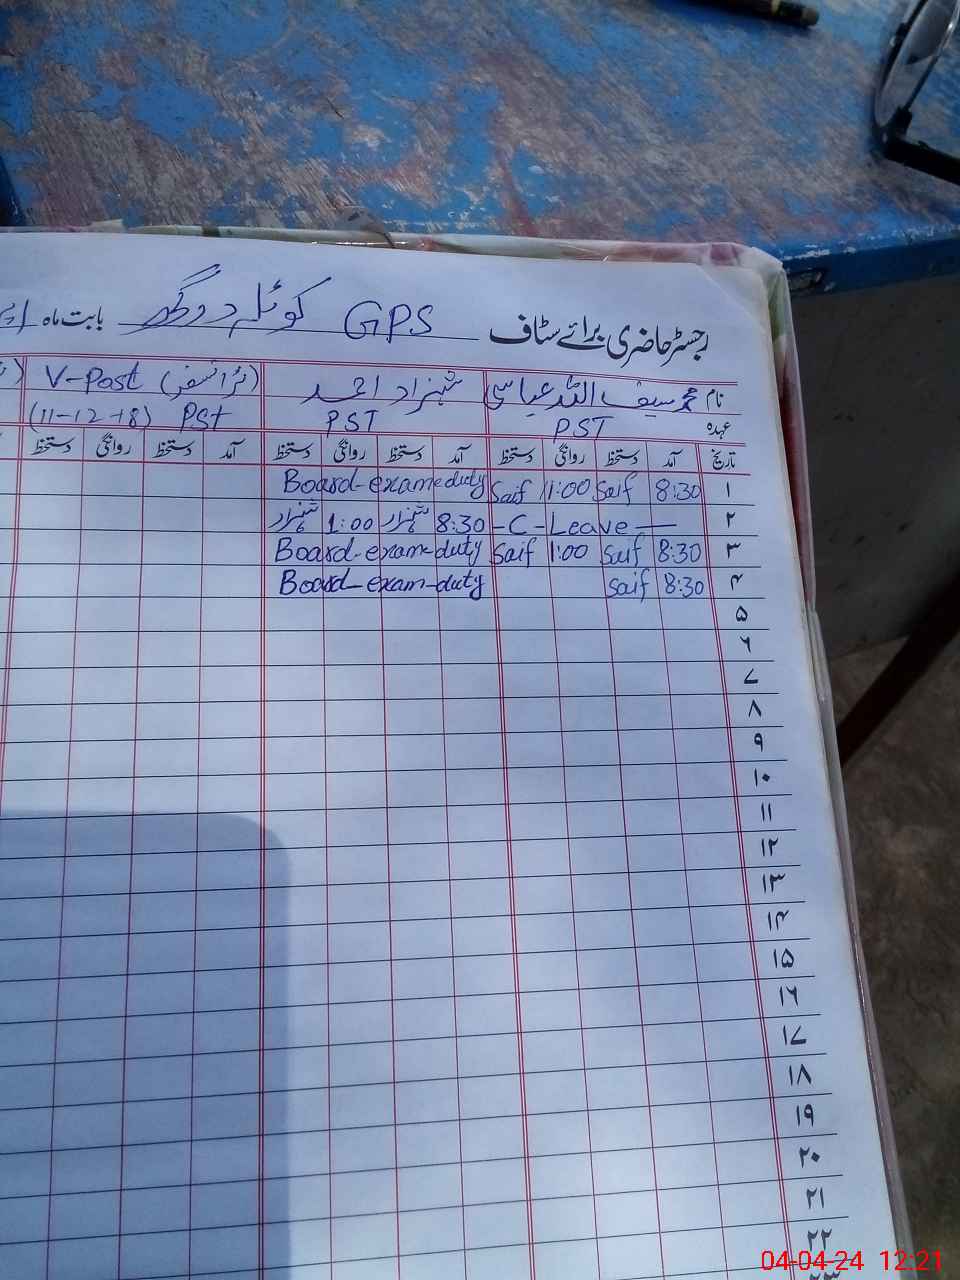 رجسٹر حاضری برائے سٹاف GPS کوٹلہ دوگھر بابت ماہ
نام محمد سیف اللہ عباسی شہزاد احمد V-Post (ٹرانسفر)
عہدہ PST PST PST (11-12-18)
تاریخ آمد دستخط روانگی دستخط آمد دستخط روانگی دستخط آمد دستخط روانگی دستخط
۱ 8:30 Saif 1:00 Saif Board-exam-duty
۲ -C-Leave- 8:30 شہزاد 1:00 شہزاد
۳ 8:30 Saif 1:00 Saif Board-exam-duty
۴ 8:30 Saif Board-exam-duty
۵
۶
۷
۸
۹
۱۰
۱۱
۱۲
۱۳
۱۴
۱۵
۱۶
۱۷
۱۸
۱۹
۲۰
۲۱
۲۲
۲۳
04-04-24 12:21